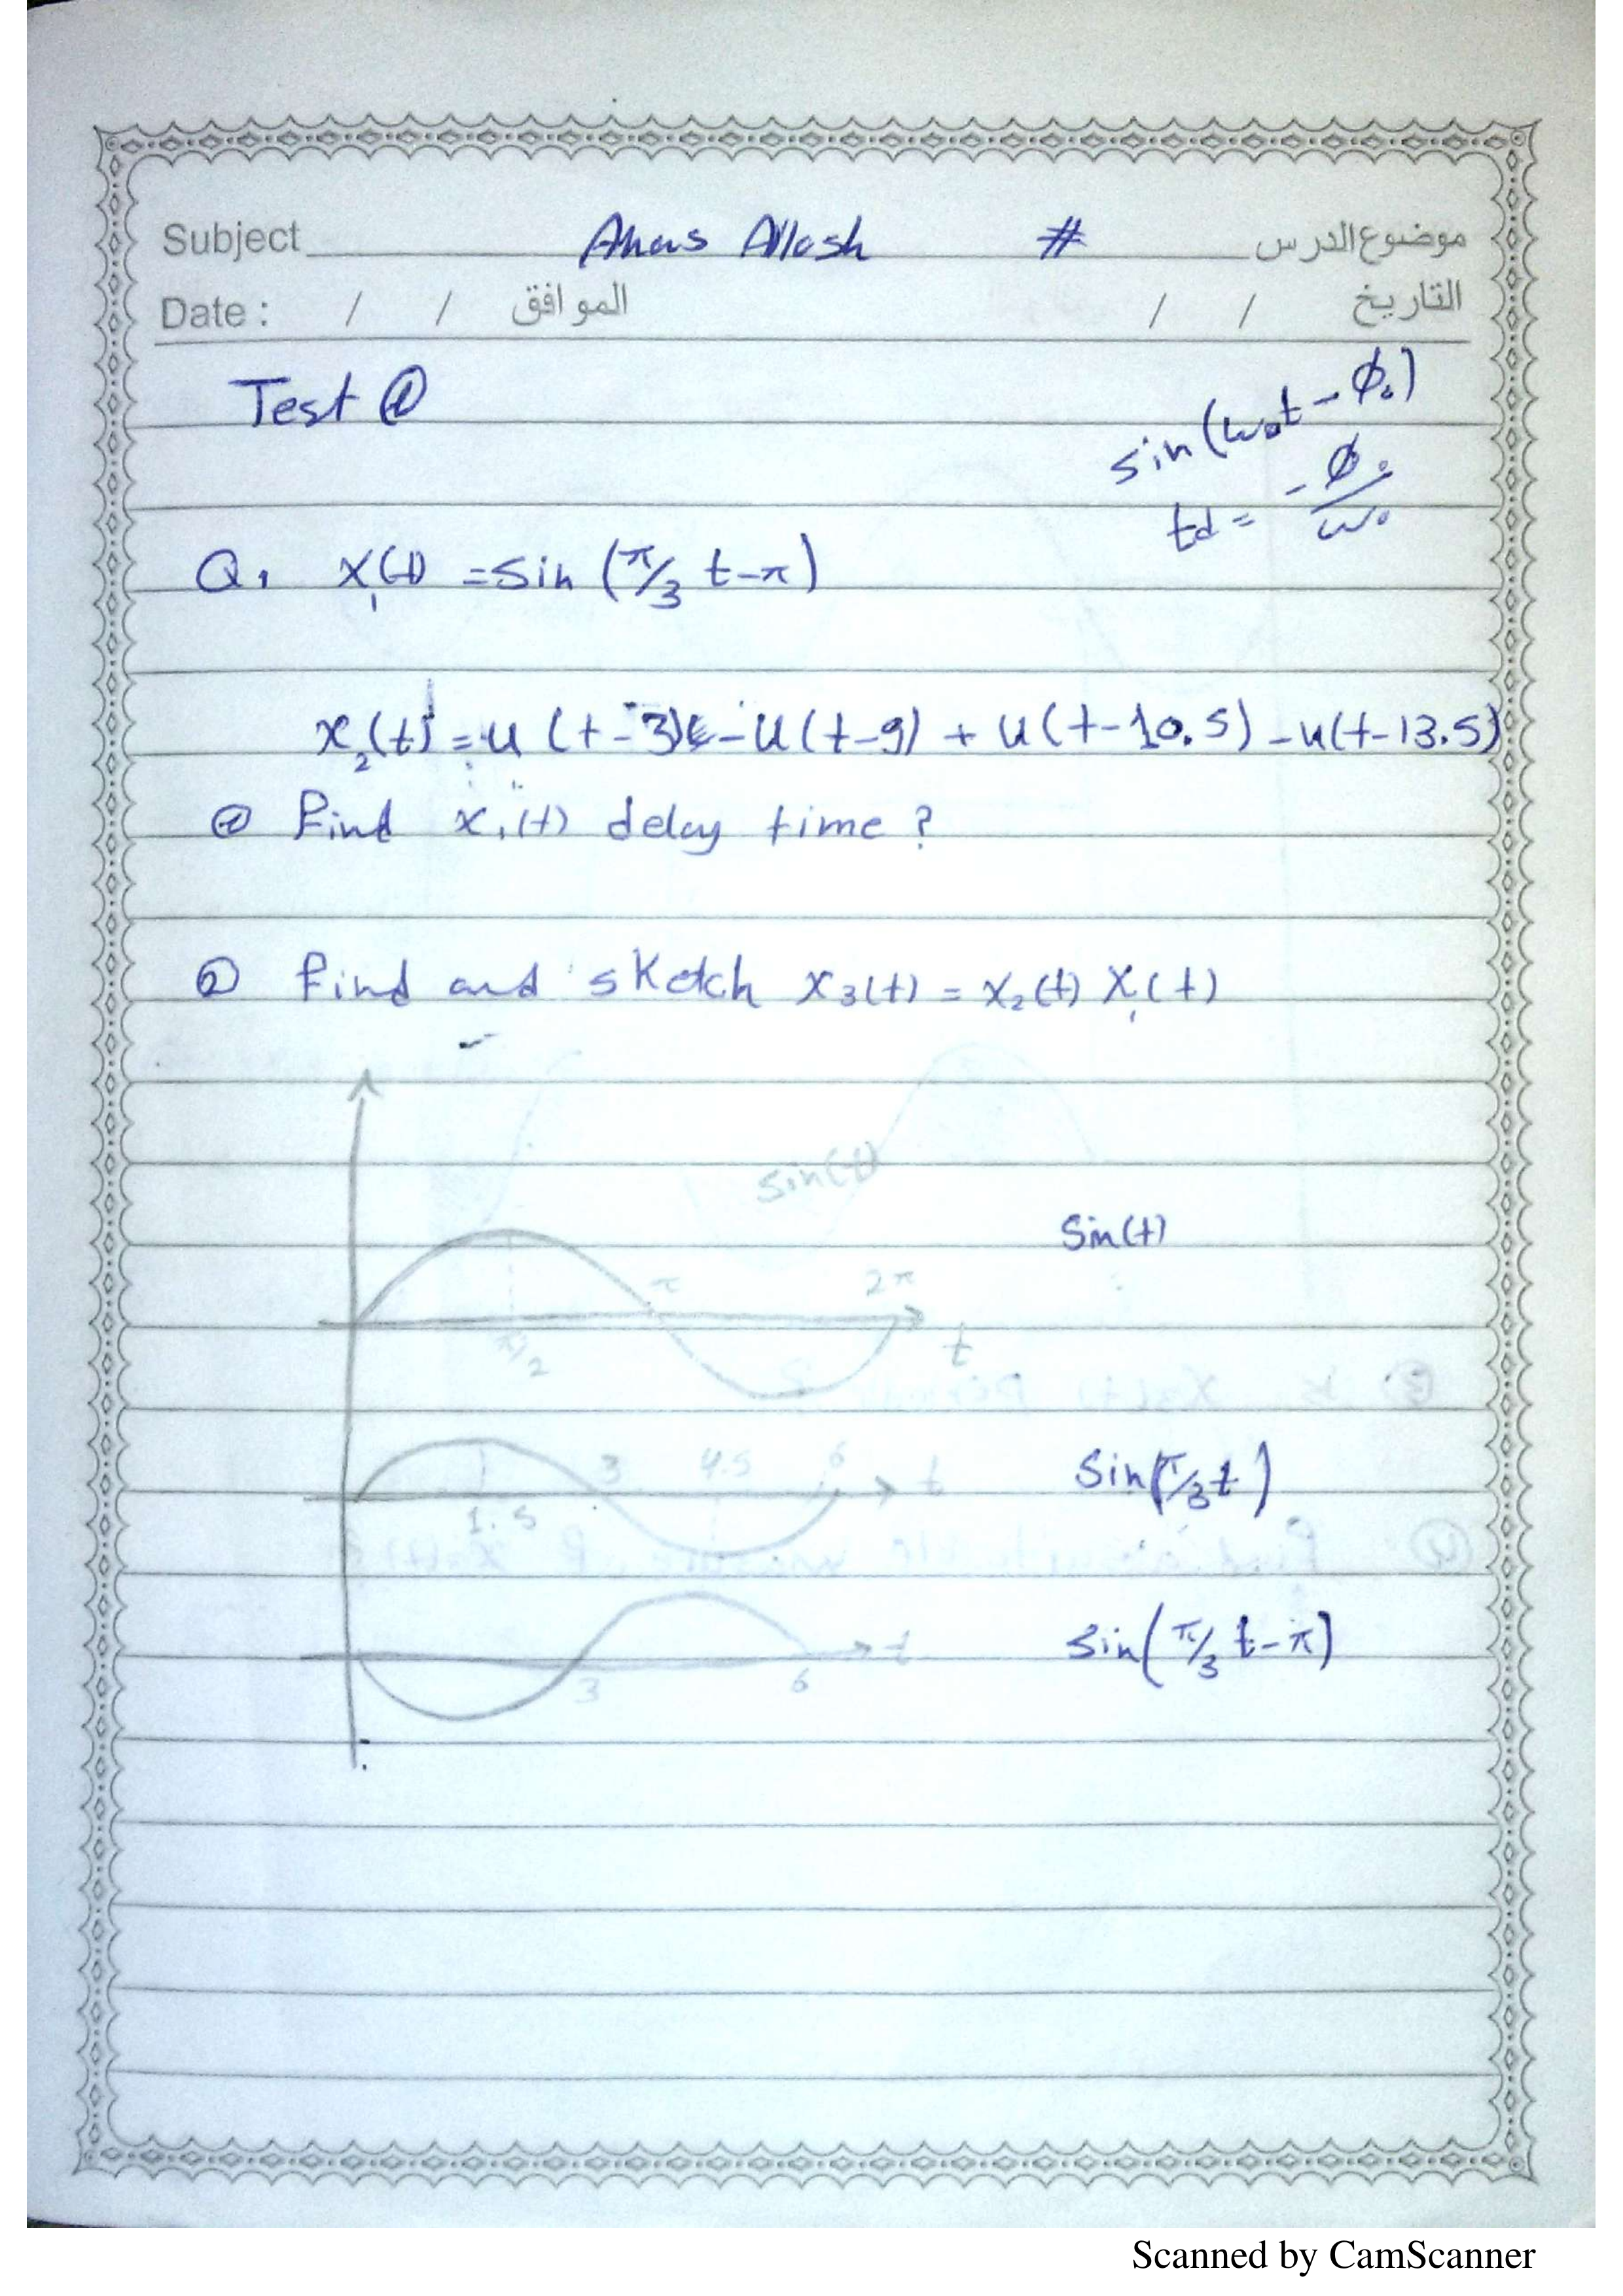 Subject Anas Allosh # موضوع الدرس
Date : / / الموافق / / التاريخ
Test ①
sin(ω₀t - ϕ₀)
td = -ϕ₀/ω₀
Q1 x₁(t) = sin (π/3 t-π)
x₂(t) = u(t-3) - u(t-9) + u(t-10.5) - u(t-13.5)
① Find x₁(t) delay time ?
② Find and sketch x₃(t) = x₂(t) x₁(t)
sin(t)
Sin(t)
π 2π
π/2 t
3 4.5 6 t
1.5
Sin(π/3 t)
t
3 6
sin(π/3 t-π)
Scanned by CamScanner